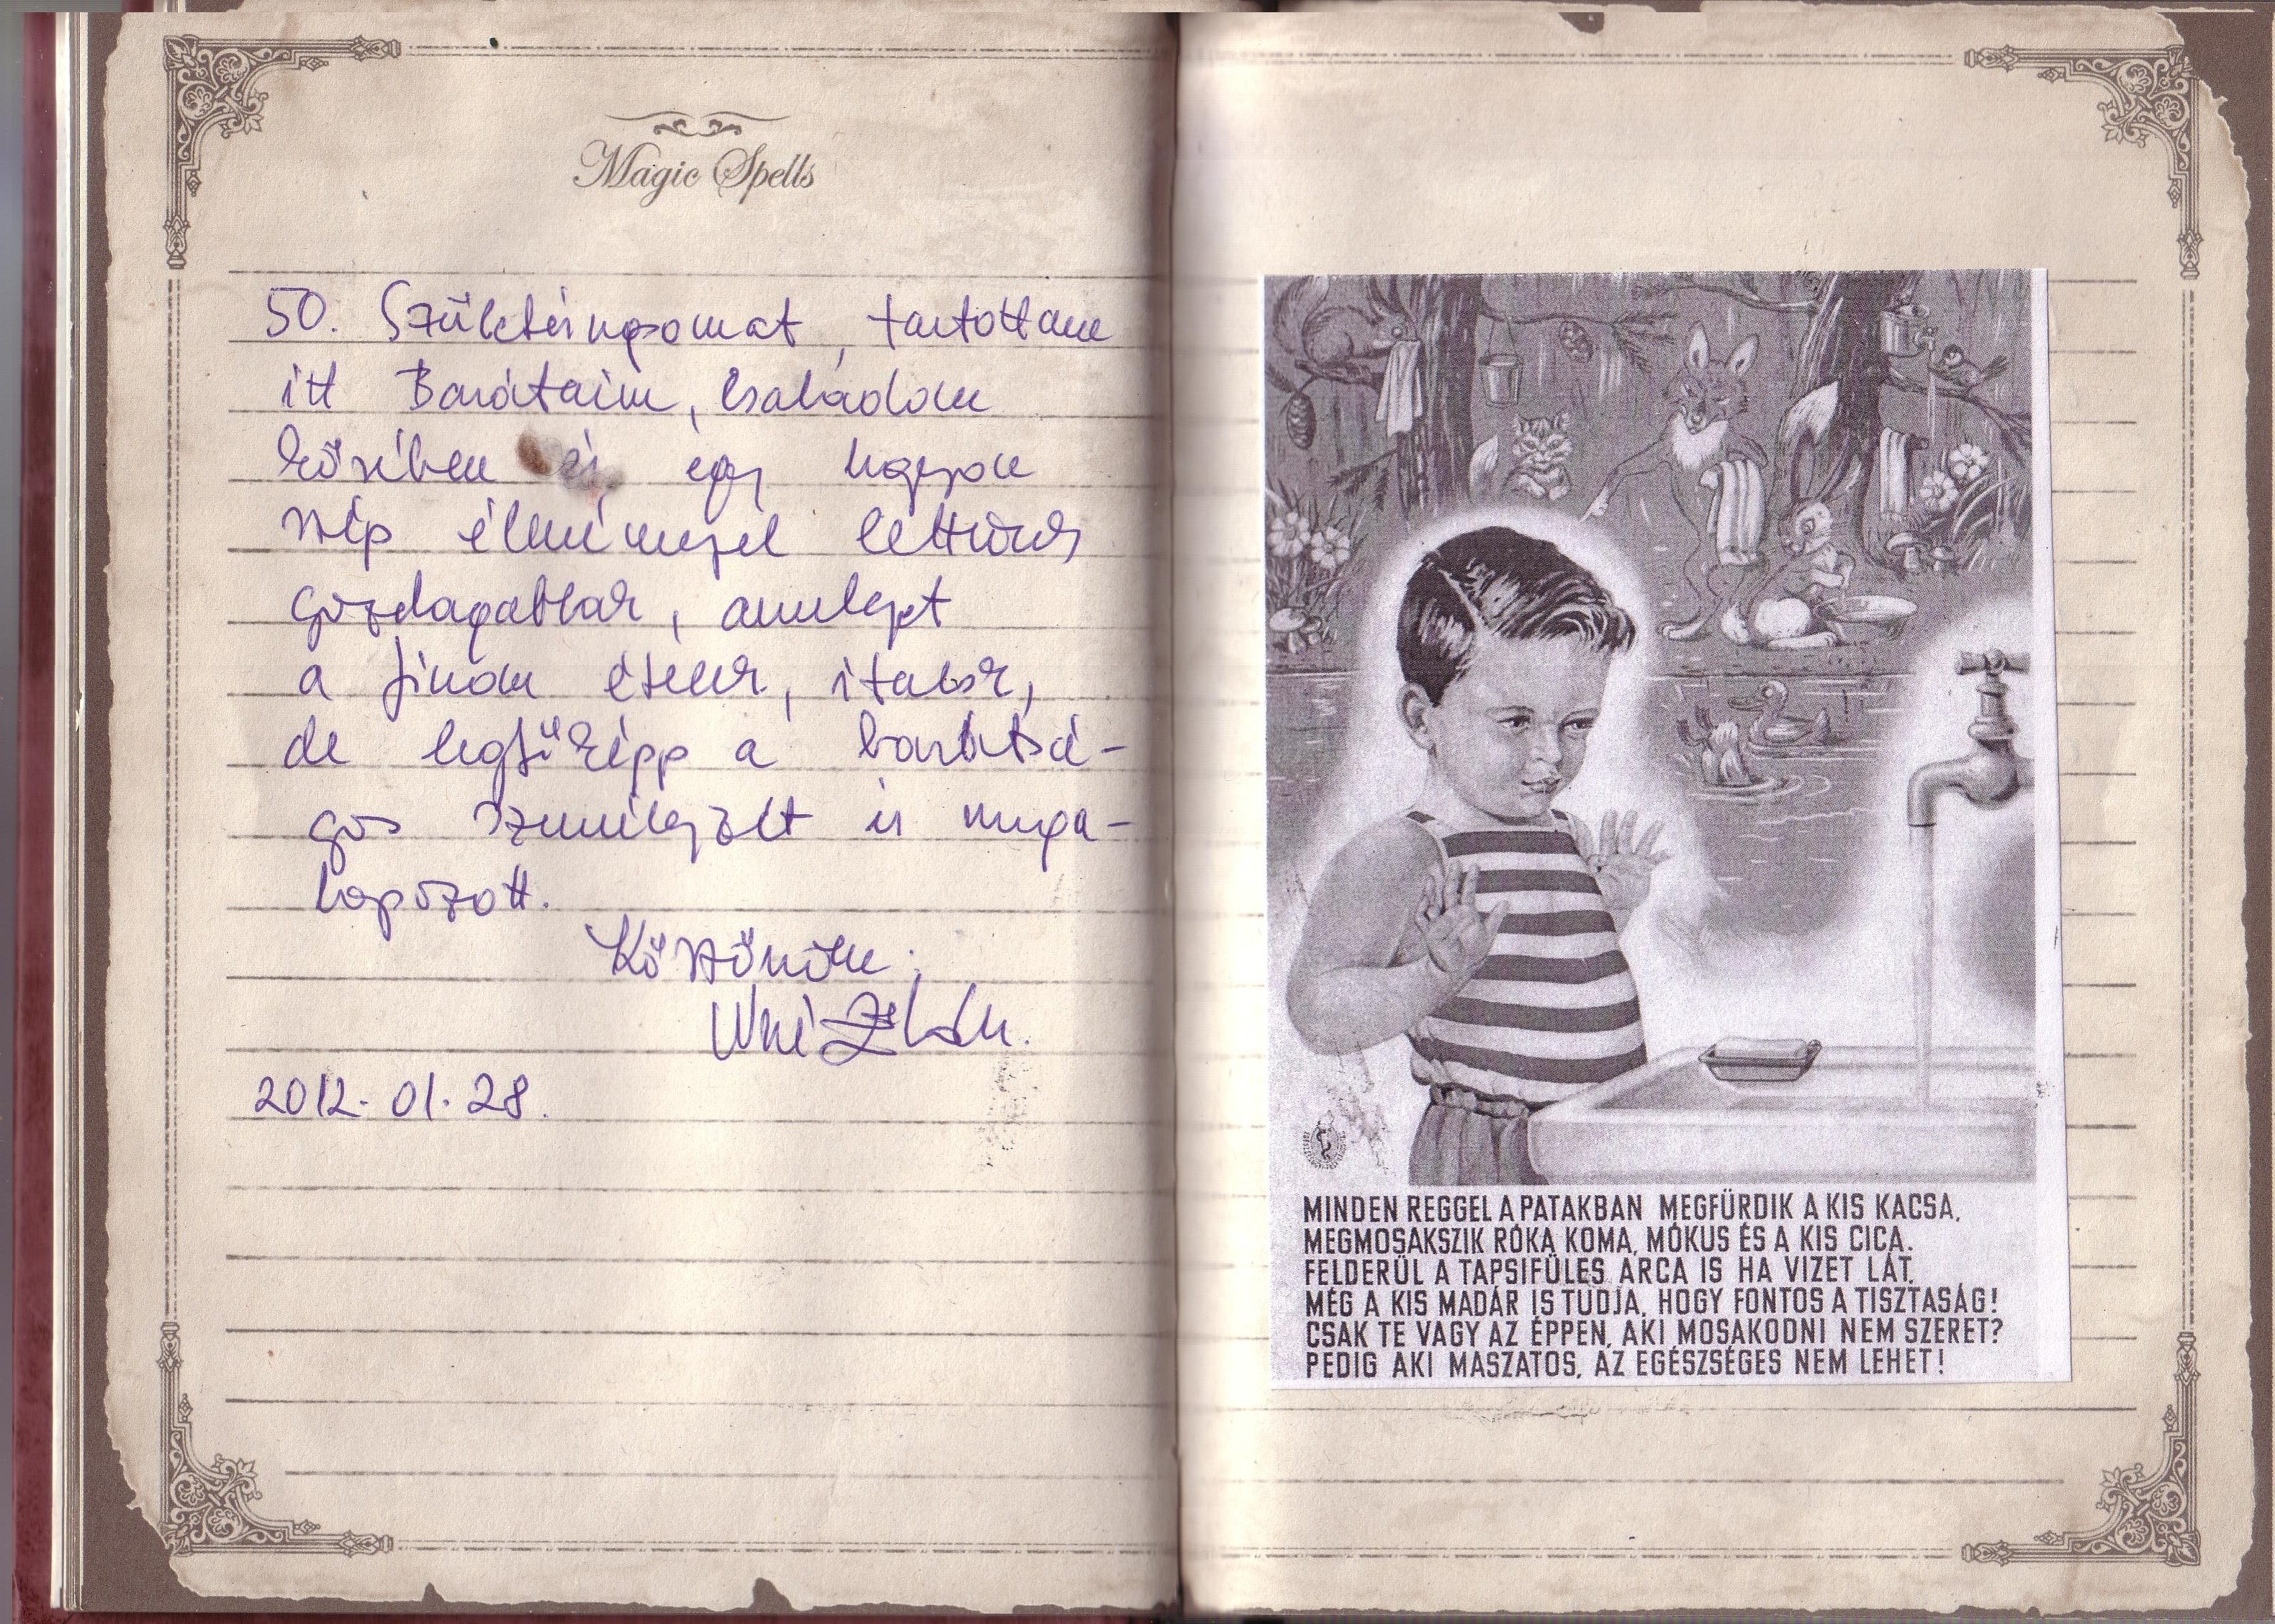 Magic Spells
50. Születésnapomat, tartottam
itt Barátaim, Családom
körében és egy nagyon
szép élménnyel lettünk
gazdagabbak, amelyet
a finom ételek, italok,
de legfőképp a barátsá-
gos személyzet is mega-
lapozott.
Köszönöm:
Zoltán.
2012. 01. 28.
MINDEN REGGEL A PATAKBAN MEGFÜRDIK A KIS KACSA,
MEGMOSAKSZIK RÓKA KOMA, MÓKUS ÉS A KIS CICA.
FELDERÜL A TAPSIFÜLES ARCA IS HA VIZET LÁT,
MÉG A KIS MADÁR IS TUDJA, HOGY FONTOS A TISZTASÁG!
CSAK TE VAGY AZ ÉPPEN, AKI MOSAKODNI NEM SZERET?
PEDIG AKI MASZATOS, AZ EGÉSZSÉGES NEM LEHET!